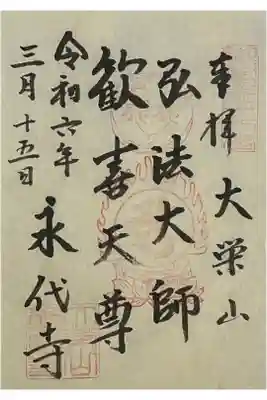 奉拝 大栄山
弘法大師
歓喜天尊
永代寺
令和六年
三月十五日